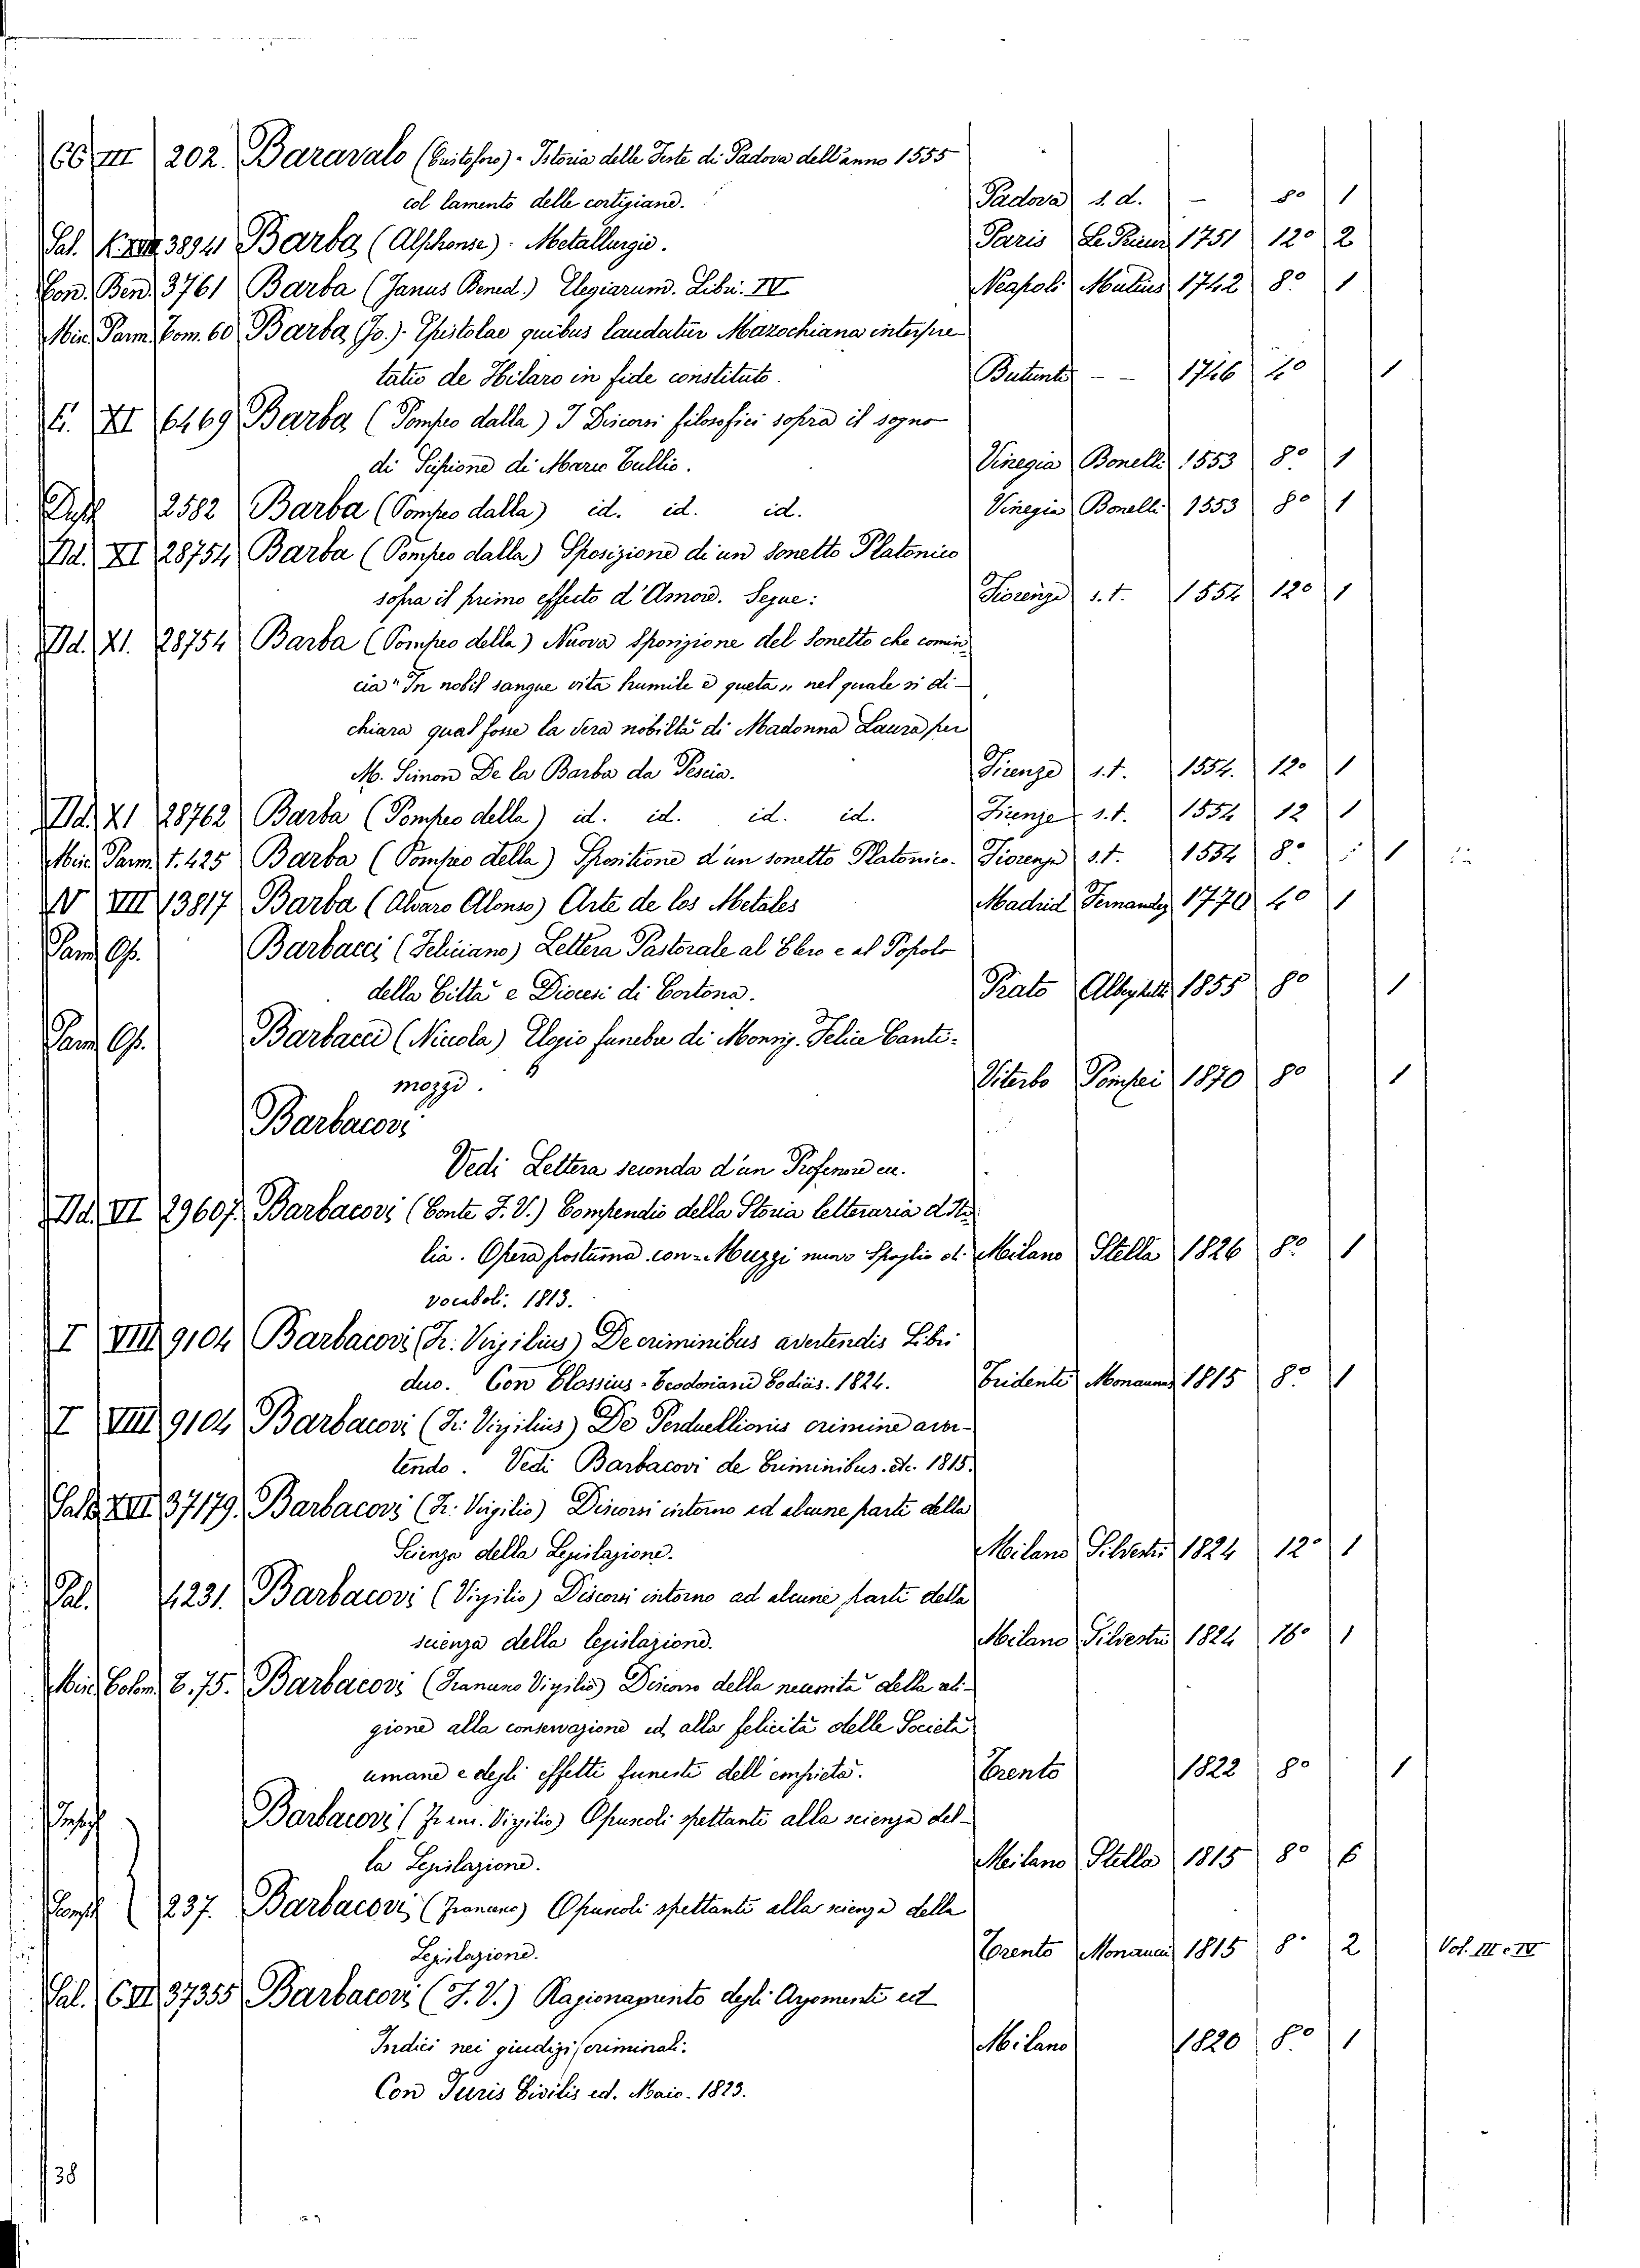 CC III 202. Baravalo (Cristoforo) - Istoria delle Feste di Padova dell'anno 1555
col lamento delle cortigiane. Padova s. d. - 8º 1
Sal. 3894 Barba (Alphonse) - Metallurgie. Paris Le Prieur 1751 12º 2
Con. Ben. 3761 Barba (Janus Bened.) Elegiarum. Libri. IV Neapoli Mutius 1742 8º 1
Min. Parm. Tom. 60 Barba (Jo.) - Epistolae quibus laudatur Mazochiana interpre
tatio de Hilaro in fide constituto. Butunti - - 1746 4º 1
E. XI 6469 Barba (Pompeo dalla) I Discorsi filosofici sopra il sogno
di Scipione di Marco Tullio. Vinegia Bonelli 1553 8º 1
2582 Barba (Pompeo dalla) id. id. id. Vinegia Bonelli 1553 8º 1
Dd. XI 28754 Barba (Pompeo dalla) Sposizione di un sonetto Platonico
sopra il primo effecto d'Amore. Segue: Fiorenze s. t. 1554 12º 1
Dd. XI. 28754 Barba (Pompeo della) Nuova Sposizione del Sonetto che comin
cia "In nobil sangue vita humile e queta" nel quale si di-
chiara qual fosse la vera nobiltà di Madonna Laura per
M. Simon De la Barba da Pescia. Firenze s. t. 1554. 12º 1
Dd. XI 28762 Barba (Pompeo della) id. id. id. id. Firenze s. t. 1554 12 1
Min. Parm. t. 425 Barba (Pompeo della) Spositione d'un sonetto Platonico. Fiorenza s. t. 1554 8º 1
N VIII 13817 Barba (Alvaro Alonso) Arte de los Metales Madrid Fernandez 1770 4º 1
Pam. Op. Barbacci (Feliciano) Lettera Pastorale al Clero e al Popolo
della Città e Diocesi di Cortona. Prato Alberghetti 1855 8º 1
Pam. Op. Barbacci (Nicola) Elogio funebre di Monsig. Felice Canti-
mozzi. Viterbo Pompei 1870 8º 1
Barbacovi
Vedi Lettera seconda d'un Professore ec.
Dd. VII 29607. Barbacovi (Conte F. V.) Compendio della Storia letteraria d'Ita
lia. Opera postuma. con - Muzzi nuovo Spoglio di Milano Stella 1826 8º 1
vocaboli. 1813.
I VIII 9104 Barbacovi (Fr. Vigilius) De criminibus avertendis Libri
duo. Con Clossius - Teodosiani Codicis. 1824. Tridenti Monauni 1815 8º 1
I VIII 9104 Barbacovi (Fr. Vigilius) De Perduellionis crimine aver-
tendo. Vedi Barbacovi de Criminibus. etc. 1815.
XIII 37179. Barbacovi (Fr. Vigilio) Discorsi intorno ad alcune parti della
Scienza della Legislazione. Milano Silvestri 1824 12º 1
Pal. 4231. Barbacovi (Vigilio) Discorsi intorno ad alcune parti della
scienza della legislazione. Milano Silvestri 1824 16º 1
Min. Colom. C. 75. Barbacovi (Franano Vigilio) Discorso della necessità della reli-
gione alla conservazione ed alla felicità delle Società
umane e degli effetti funesti dell'empietà. Trento 1822 8º 1
Barbacovi (Franc. Vigilio) Opuscoli spettanti alla scienza del-
la Legislazione. Milano Stella 1815 8º 6
237. Barbacovi (Franano) Opuscoli spettanti alla scienza della
Legislazione. Trento Monauni 1815 8º 2 Vol. III e IV
Sal. C VII 37355 Barbacovi (F. V.) Ragionamento degli Argomenti ed
Indici nei giudizi criminali. Milano 1820 8º 1
Con Juris Civilis ed. Maio. 1823.
38